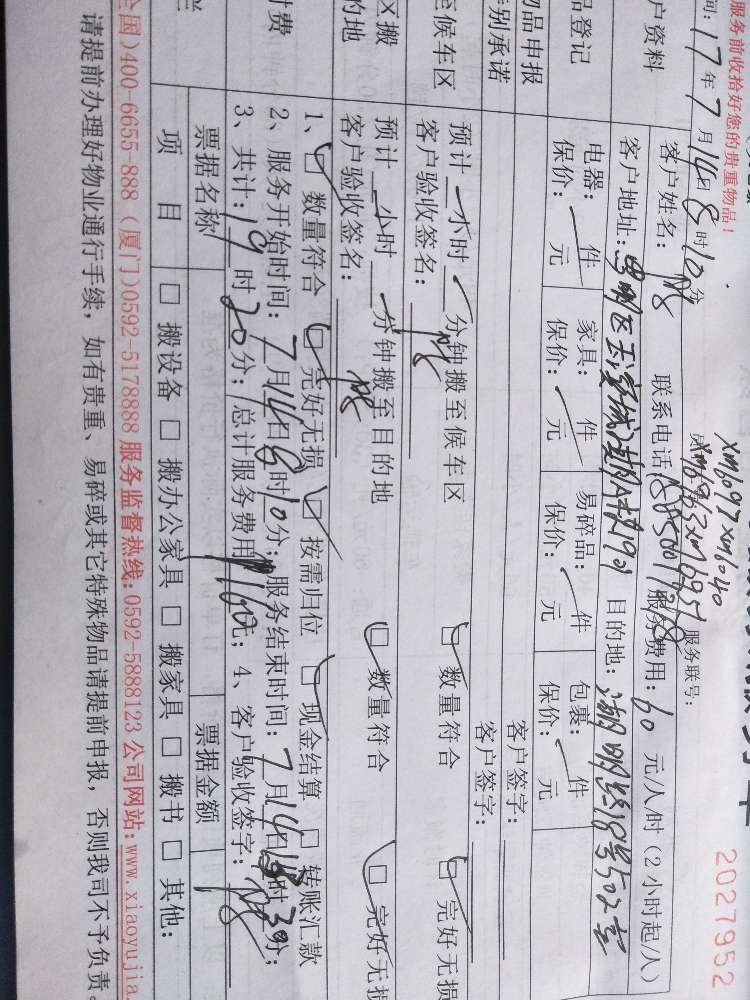 2027952
服务前收拾好您的贵重物品！
xm6097 xm6040
服务联号：
间：17年7月14日8时10分
户资料
客户姓名：
联系电话
服务费用：60元/人/时（2小时起/人）
客户地址：
目的地：
品登记
电器：一件
家具：一件
易碎品：一件
包裹：一件
保价：元
保价：元
保价：元
保价：元
物品申报
客户签字：
特别承诺
客户签字：
候车区
预计一小时一分钟搬至候车区
数量符合
完好无损
客户验收签名：
区搬
的地
预计一小时一分钟搬至目的地
数量符合
完好无损
客户验收签名：
付费
1、数量符合 完好无损 按需归位 现金结算 转账汇款
2、服务开始时间：7月14日8时10分；服务结束时间：7月14日时30分；
3、共计：19时20分；总计服务费用1160元；4、客户验收签字：
票据名称
票据金额
项目
搬设备 搬办公家具 搬家具 搬书 其他：
全国)400-6655-888（厦门)0592-5178888 服务监督热线:0592-5888123 公司网站:www.xiaoyujia
请提前办理好物业通行手续，如有贵重、易碎或其它特殊物品请提前申报，否则我司不予负责。